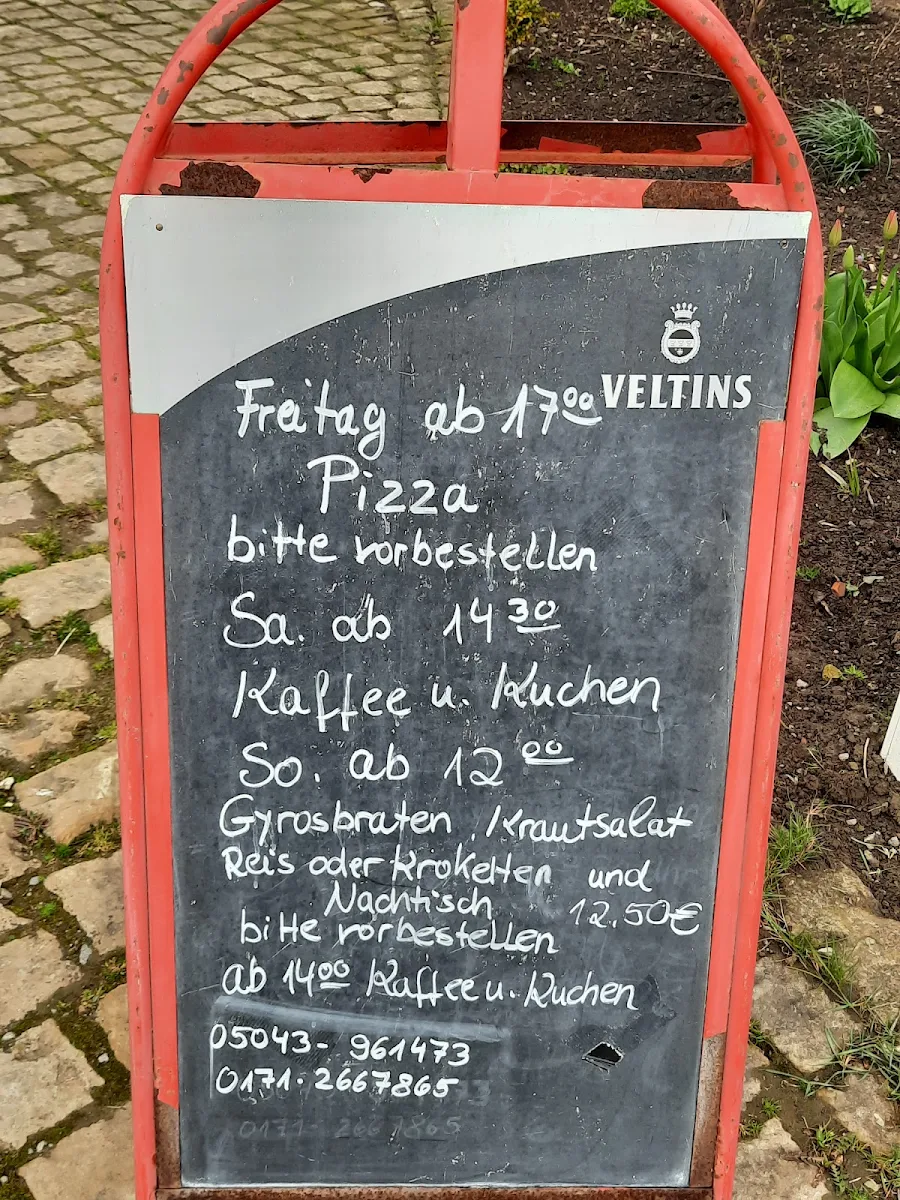 VELTINS
Freitag ab 17⁰⁰
Pizza
bitte vorbestellen
Sa. ab 14³⁰
Kaffee u. Kuchen
So. ab 12⁰⁰
Gyrosbraten, Krautsalat
Reis oder Kroketten und
Nachtisch 12,50€
bitte vorbestellen
ab 14⁰⁰ Kaffee u. Kuchen
05043- 961473
0171-2667865